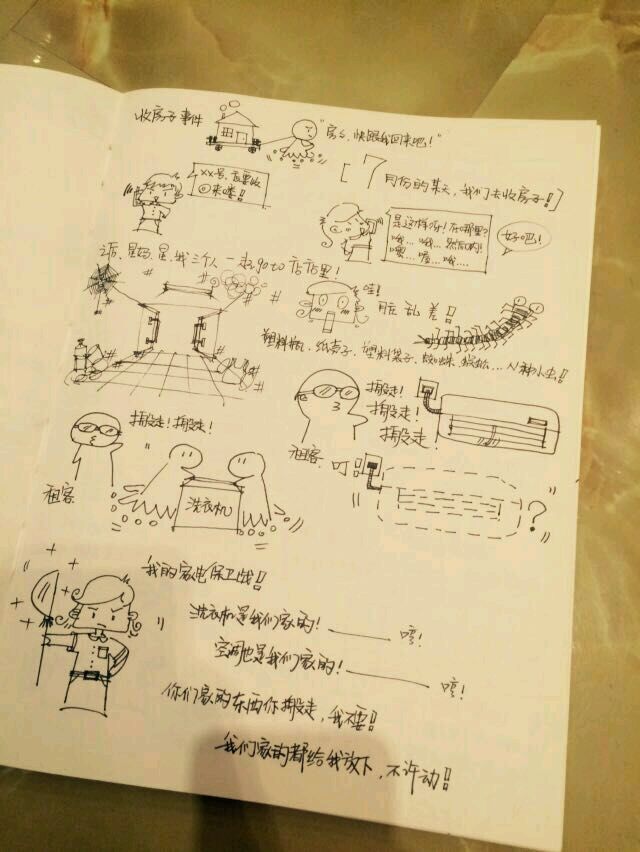 收房子事件
"房子,快跟我回来吧!"
[7月份的某天,我们去收房子!]
XX号,首要收
回来喽!!
是这样啊!在哪里?
哦...哦...然后呢!
嗯...嗯...哦...
好吧!
我三个人一起go to 店店里!
哇!
脏乱差!!
塑料瓶、纸桌子、塑料袋子、蜘蛛、蜈蚣...N种小虫!!
搬走!
搬走!
搬走!
搬走!搬走!
租客
洗衣机
租客 叮!
?
我的家电保卫战!!
洗衣机是我们家的!——— 哼!
空调也是我们家的!——— 哼!
你们家的东西你搬走,我不要!!
我们家的都给我放下,不许动!!